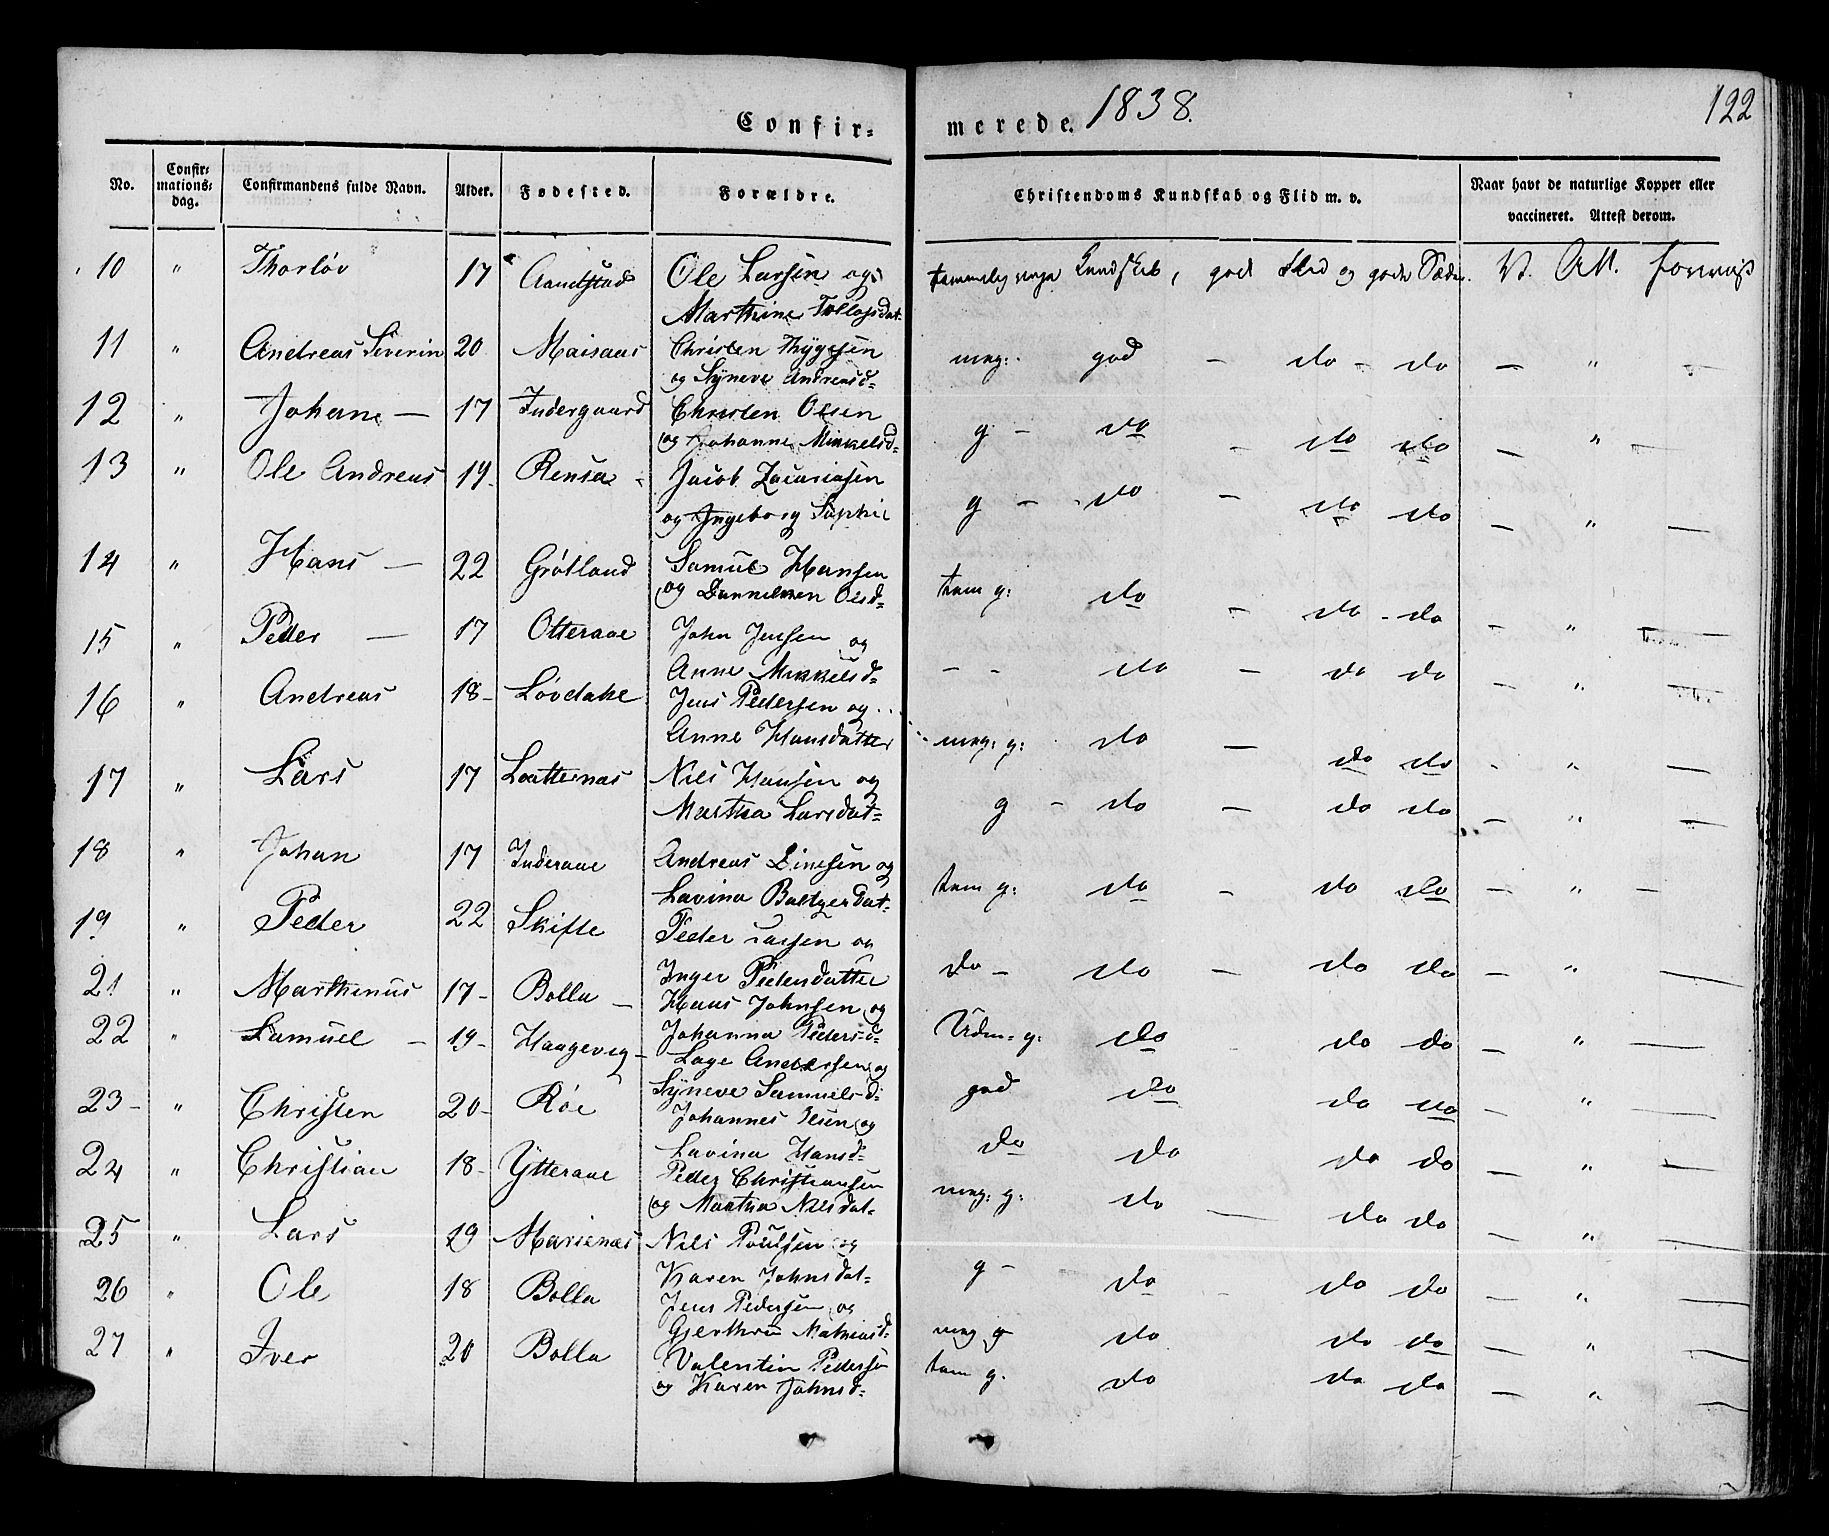 Confir- merede. 1838. 122
No. Confir-mations-dag. Confirmandens fulde Navn. Alder. Fødested. Forældre. Christendoms Kundskab og Flid m. v. Naar havt de naturlige Kopper eller vaccineret. Attest derom.
10 " Thorløv 17 Aandstad Ole Larsen og temmelig Kundskab, god Flid og gode Sæder. V. Att.
Marthine
11 " Andreas Severin 20 Maisaas Christen Thygesen meg: god — do — do — " —
og Syneve Andreasd=
12 " Johan — 17 Indergaard Christen Olsen g — do — do do — " —
og Johanne Mikkelsd=
13 " Ole Andreas 19 Rensaa Jacob Zacariasen g — do — do do — " —
og Ingeborg Sophie
14 " Hans — 22 Grøtland Samuel Hansen tem g: do — do - do — " —
og Olsd=
15 " Peder — 17 Otteraae John Jensen og — — do — do do — " —
Anne Mikkelsd=
16 " Andreas 18- Løvdahe Jens Pedersen og meg: g: do — do do - " —
Anne Hansdatter
17 " Lars 17 Nils Hansen og g — do — do do — " —
Martha Larsdat=
18 " Johan 17 Inderaae Andreas og tem g: do — do do — " —
Lavina Baltzersdat=
19 " Peder 22 Skifte Peder og do — do — do do — " —
Inger Pedersdatter
21 " Marthinus 17- Bolla — Hans Johnsen og Udm= g: do do do — " —
Johanna Pedersd=
22 " Samuel — 19- Haagevig — Lage Andersen og god do do do — " —
Syneve Samuelsd:
23- " Christen 20- Røe Johannes og do do do do — " —
Lavina Hansd=
24 " Christian 18- Ytteraae Peder Christiansen meg: g: do — do do — " —
og Martha Nilsdat=
25 " Lars 19 Marienæs Nils Poulsen og g — do do do — " —
Karen Johnsdat=
26 " Ole 18 Bolla Jens Pedersen og meg g do do do — " —
Gjerthru Mathiasd:
27 " Iver 20 Bolla Valentin Pedersen tem g. do do do — " —
og Karen Johnsd=